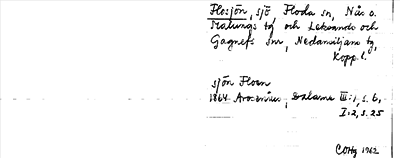 Flosjön, sjö, Floda sn, Nås o.
Malungs tg och Leksands och
Gagnefs snr, Nedansiljans tg,
Kopp. l.
sjön Floen
1864 Arosenius, Dalarne III:1, s. 6,
I:2, s. 25
COtg 1962